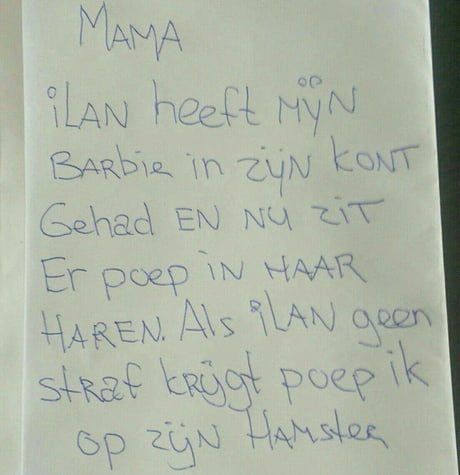 MAMA
iLAN heeft MijN
BARbie in zijn KONT
Gehad EN NU ZIT
Er poep iN HAAR
HAREN. Als iLAN geen
STRAf krijgt poep ik
op zijn HAMSTER